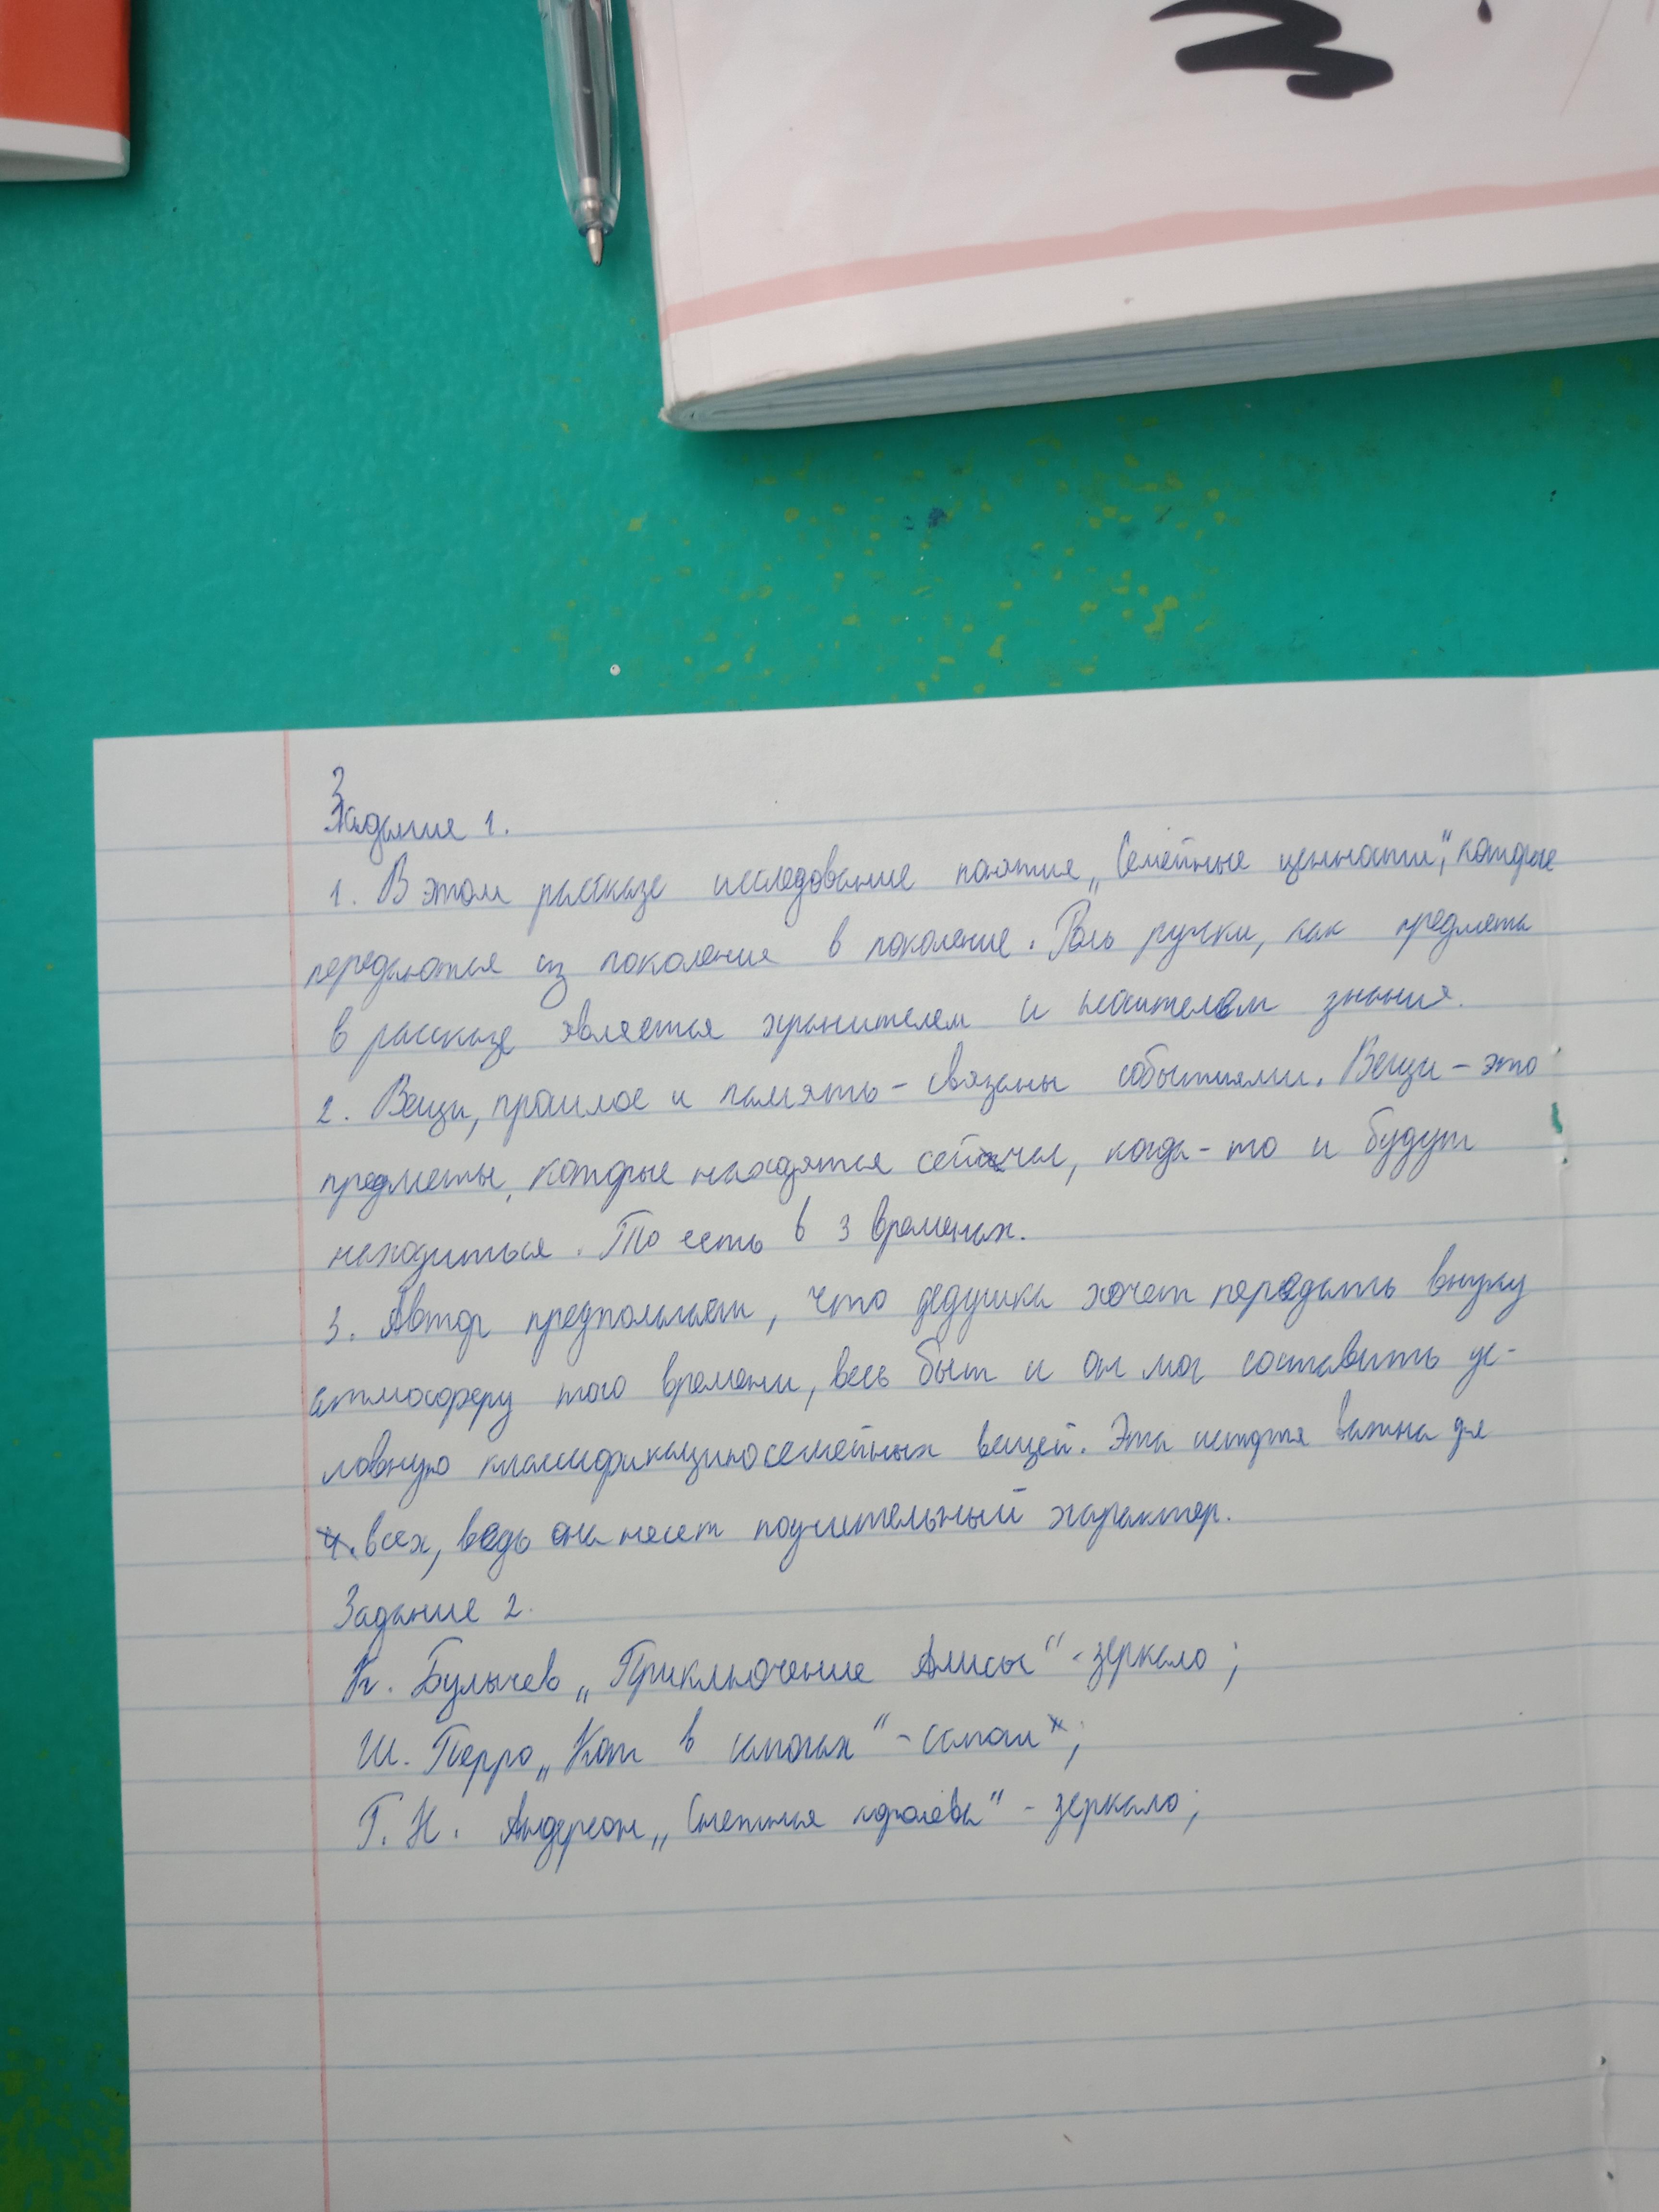 Задание 1.
1. В этом рассказе исследование понятия „Семейные ценности“, которые
передаются из поколения в поколение. Роль ручки, как предмета
в рассказе является хранителем и носителем знания.
2. Вещи, прошлое и память – связаны событиями. Вещи – это
предметы, которые находятся сейчас, когда-то и будут
находиться. То есть в 3 временах.
3. Автор предполагает, что дедушка хочет передать внуку
атмосферу того времени, весь быт и он мог составить ус-
ловную классификацию семейных вещей. Эта история важна для
всех, ведь она несет поучительный характер.
Задание 2.
К. Булычев „Приключение Алисы“ - зеркало;
Ш. Перро „Кот в сапогах“ - сапоги;
Г. Х. Андерсон „Снежная королева“ - зеркало;